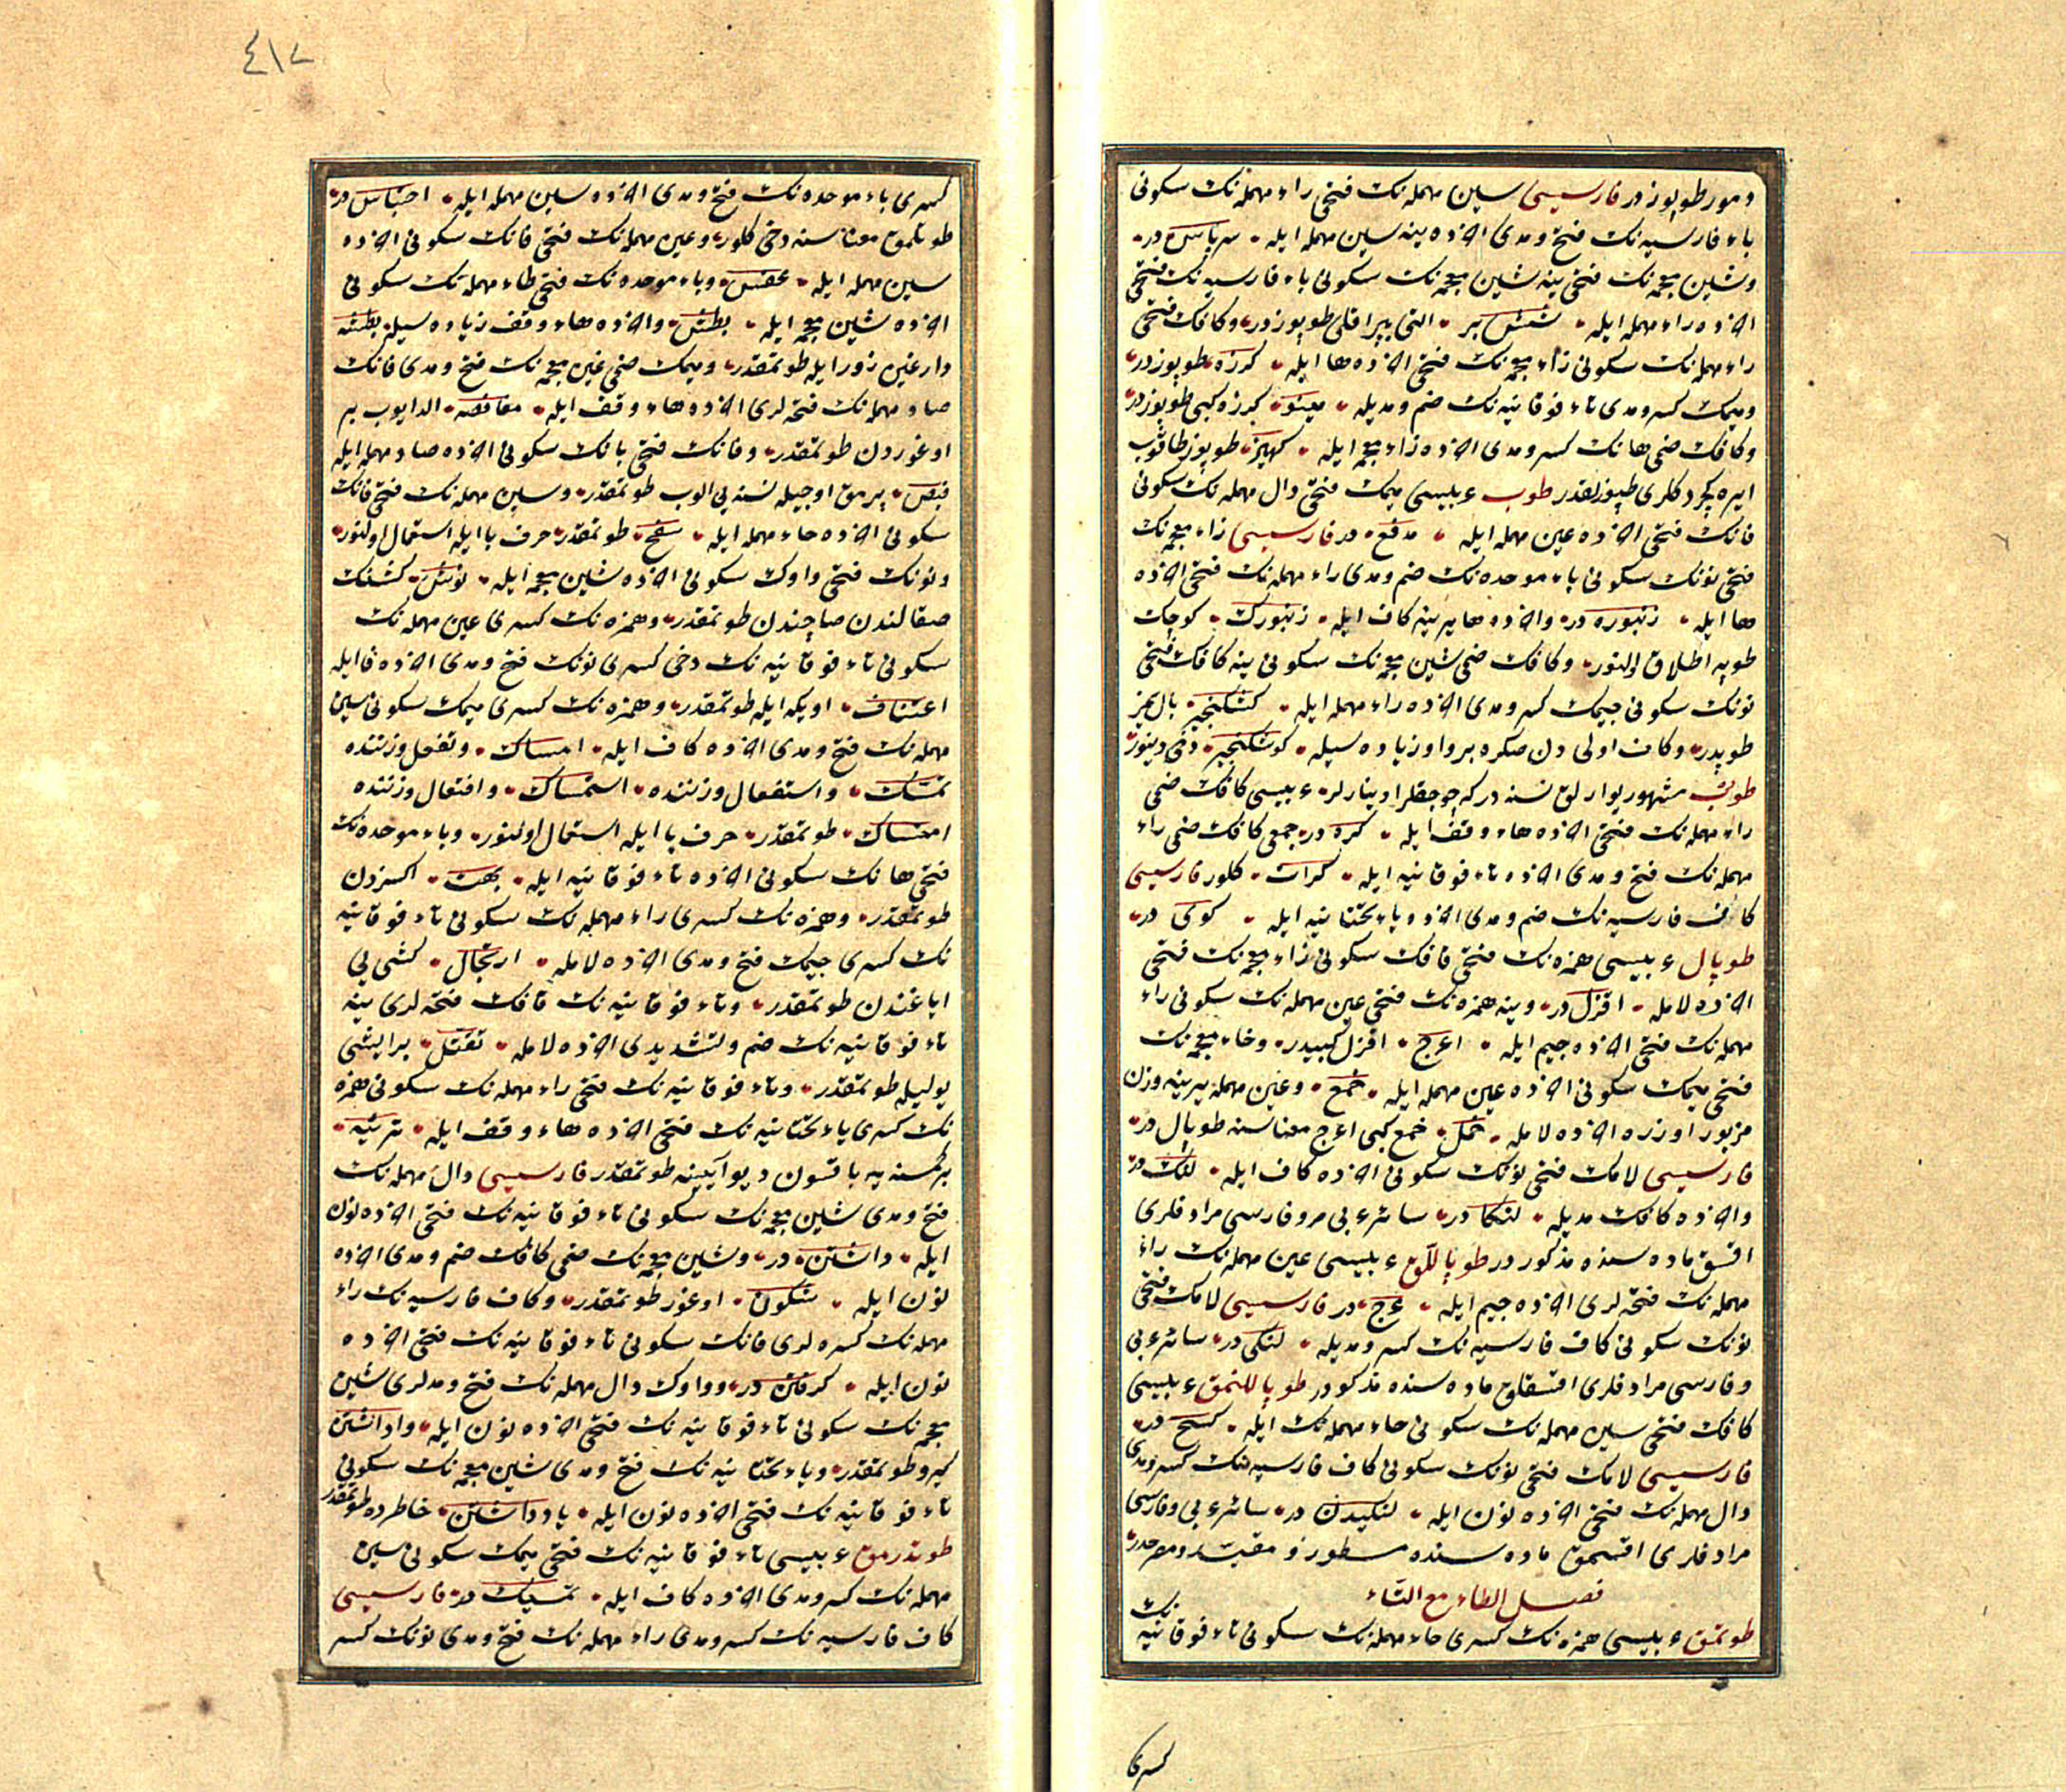 و مور طوپوز در فارسیسی سین مهمله نك فتحی راء مهمله نك سكونی
باء فارسیه نك فتح و مدی اخرده ینه سین مهمله ایله سرپاس در
و شین معجمه نك فتحی ینه شین معجمه نك سكونی باء فارسیه نك فتحی
اخرده راء مهمله ایله شش پر التی پیراقلی طوپوز در و كافك فتحی
راء مهمله نك سكونی زاء معجمه نك فتحی اخرده ها ایله كرزه طوپوز در
و میمك كسر و مدی تاء فوقانیه نك ضم و مدیله میتو كرز كبی طوپوز در
و كافك ضمی هانك كسر و مدی اخرده زاء معجمه ایله كهیز طوپوز طاقوب
ایره كچردكلری طپوز لقدر طوب عربیسی میمك فتحی دال مهمله نك سكونی
فانك فتحی اخرده عین مهمله ایله مدفع در فارسیسی زاء معجمه نك
فتحی نونك سكونی باء موحده نك ضم و مدی راء مهمله نك فتحی اخرده
ها ایله زنبوره در و اخرده ها یرینه كاف ایله زنبورك كوچك
طوپه اطلاق اولنور و كافك ضمی شین معجمه نك سكونی ینه كافك فتحی
نونك سكونی جیمك كسر و مدی اخرده راء مهمله ایله كشكنجیر بال یمز
طوپدر و كاف اولی دن صكره بر واو زیاده سیله كوشكنجیر دخی دینور
طوب مشهور یوارلق نسنه در كه چوجقلر اوینارلر عربیسی كافك ضمی
راء مهمله نك فتحی اخرده هاء وقف ایله كره در جمعی كافك ضمی راء
مهمله نك فتح و مدی اخرده تاء فوقانیه ایله كرات كلور فارسیسی
كاف فارسیه نك ضم و مدی اخرده یاء تحتانیه ایله كوی در
طوپال عربیسی همزه نك فتحی قافك سكونی زاء معجمه نك فتحی
اخرده لامله اقزل در و ینه همزه نك فتحی عین مهمله نك سكونی راء
مهمله نك فتحی اخرده جیم ایله اعرج اقزل كبیدر و خاء معجمه نك
فتحی میمك سكونی اخرده عین مهمله ایله خمع و عین مهمله یرینه وزن
مزبور اوزره اخرده لامله خمل خمع كبی اعرج معناسنه طوپال در
فارسیسی لامك فتحی نونك سكونی اخرده كاف ایله لنك در
و اخرده كافك مدیله لنكا در سائر عربی و فارسی مرادفلری
اقسق ماده سنده مذكور در طوپاللق عربیسی عین مهمله نك راء
مهمله نك فتحه لری اخرده جیم ایله عرج در فارسیسی لامك فتحی
نونك سكونی كاف فارسیه نك كسر و مدیله لنكی در سائر عربی
و فارسی مرادفلری اقسقلق ماده سنده مذكور در طوپاللنمق عربیسی
كافك فتحی سین مهمله نك سكونی حاء مهمله نك ایله كسح در
فارسیسی لامك فتحی نونك سكونی كاف فارسیه نك كسر و مدی
دال مهمله نك فتحی اخرده نون ایله لنكیدن در سائر عربی و فارسی
مرادفلری اقسمق ماده سنده مسطور و مقید و مصرحدر
فصل الطاء مع التاء
طوتمق عربیسی همزه نك كسری حاء مهمله نك سكونی تاء فوقانیه نك
كسری
٤١٧
كسری باء موحده نك فتح و مدی اخرده سین مهمله ایله احتباس در
طوتلمق معناسنه دخی كلور و عین مهمله نك فتحی فانك سكونی اخرده
سین مهمله ایله عفس و باء موحده نك فتحی طاء مهمله نك سكونی
اخرده شین معجمه ایله بطش و اخرده هاء وقف زیاده سیله بطشه
زور ایله طوتمقدر و میمك ضمی غین معجمه نك فتح و مدی فانك
صاد مهمله نك فتحه لری اخرده هاء وقف ایله مغافصه الدایوب بر
اوغوردن طوتمقدر و قافك فتحی بانك سكونی اخرده صاد مهمله ایله
قبص پرمق اوجیله نسنه یی الوب طوتمقدر و سین مهمله نك فتحی فانك
سكونی اخرده حاء مهمله ایله سفح طوتمقدر حرف با ایله استعمال اولنور
و نونك فتحی واوك سكونی اخرده شین معجمه ایله نوش كشنك
صقالندن صاچندن طوتمقدر و همزه نك كسری عین مهمله نك
سكونی تاء فوقانیه نك دخی كسری نونك فتح و مدی اخرده فا ایله
اعتناف اویكه ایله طوتمقدر و همزه نك كسری میمك سكونی سین
مهمله نك فتح و مدی اخرده كاف ایله امساك و تفعل وزننده
تمسك و استفعال وزننده استمساك و افتعال وزننده
امتساك طوتمقدر حرف با ایله استعمال اولنور و باء موحده نك
فتحی هانك سكونی اخرده تاء فوقانیه ایله بهت اكسزدن
طوتمقدر و همزه نك كسری راء مهمله نك سكونی تاء فوقانیه
نك كسری جیمك فتح و مدی اخرده لامله ارتجال كشی یی
ایاغندن طوتمقدر و تاء فوقانیه نك قافك فتحه لری ینه
تاء فوقانیه نك ضم و تشدیدی اخرده لامله تقتل بر ایشی
یولیله طوتمقدر و تاء فوقانیه نك فتحی راء مهمله نك سكونی همزه
نك كسری یاء تحتانیه نك فتحی اخرده هاء وقف ایله ترئیه
بر كمسنه یه باقسون دیو آیینه طوتمقدر فارسیسی دال مهمله نك
فتح و مدی شین معجمه نك سكونی تاء فوقانیه نك فتحی اخرده نون
ایله داشتن در و شین معجمه نك ضمی كافك ضم و مدی اخرده
نون ایله شكون اوغور طوتمقدر و كاف فارسیه نك راء
مهمله نك كسره لری فانك سكونی تاء فوقانیه نك فتحی اخرده
نون ایله كرفتن در و واوك دال مهمله نك فتح و مدلری شین
معجمه نك سكونی تاء فوقانیه نك فتحی اخرده نون ایله واداشتن
كیرو طوتمقدر و یاء تحتانیه نك فتح و مدی شین معجمه نك سكونی
تاء فوقانیه نك فتحی اخرده نون ایله یادداشتن خاطرده طوتمقدر
طوتدرمق عربیسی تاء فوقانیه نك فتحی میمك سكونی سین
مهمله نك كسر و مدی اخرده كاف ایله تمسیك در فارسیسی
كاف فارسیه نك كسر و مدی راء مهمله نك فتح و مدی نونك كسر